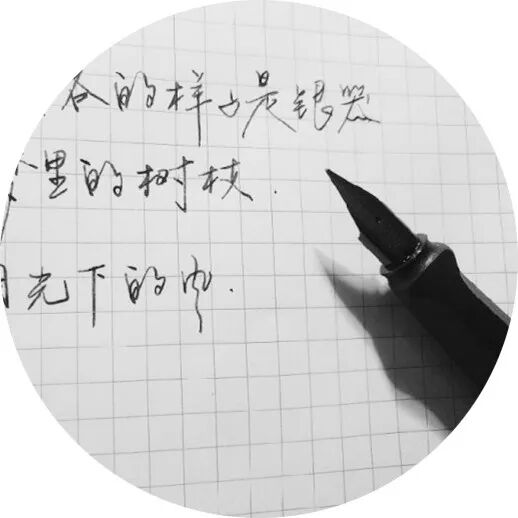 的样子是银器
里的树枝.
月光下的内.